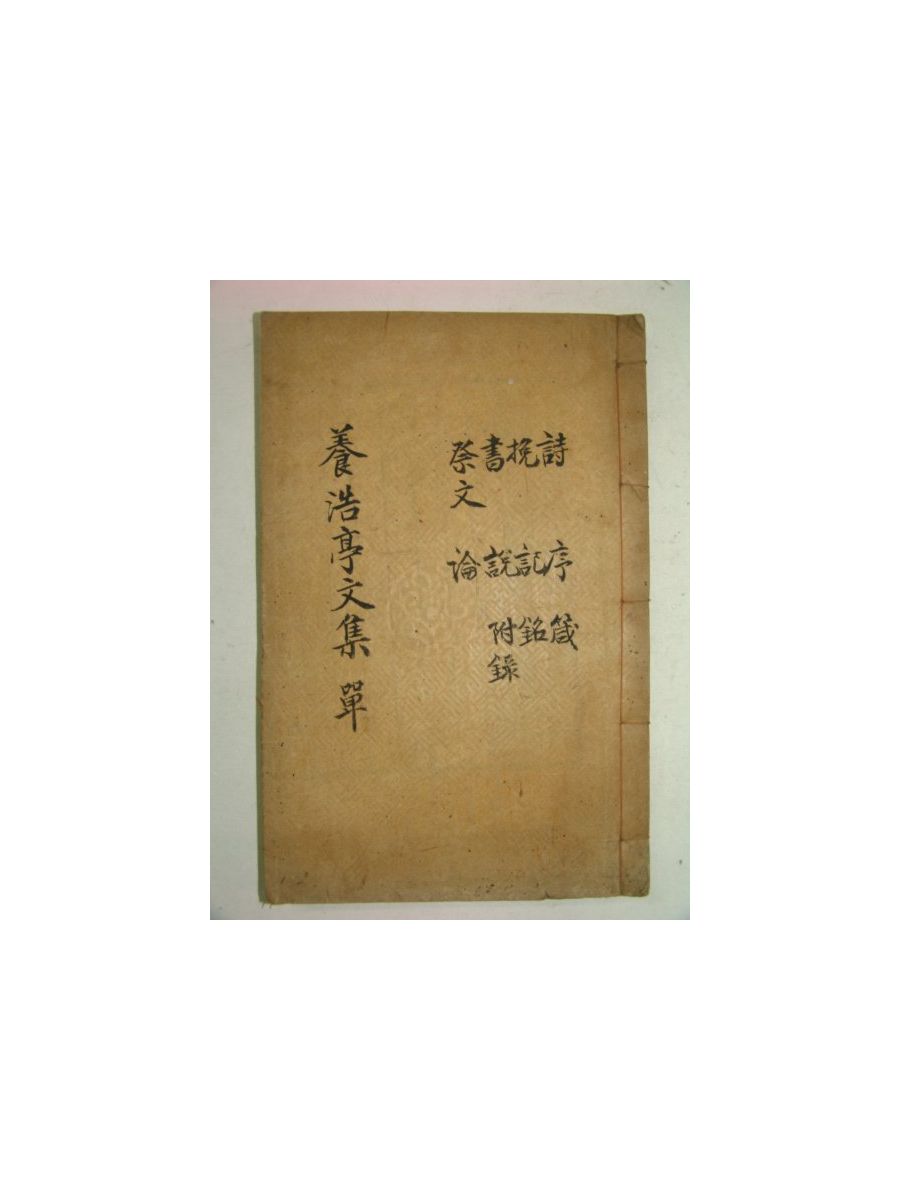 詩 挽 書 祭文
序 記 說 論
箴 銘 附錄
養浩亭文集 單